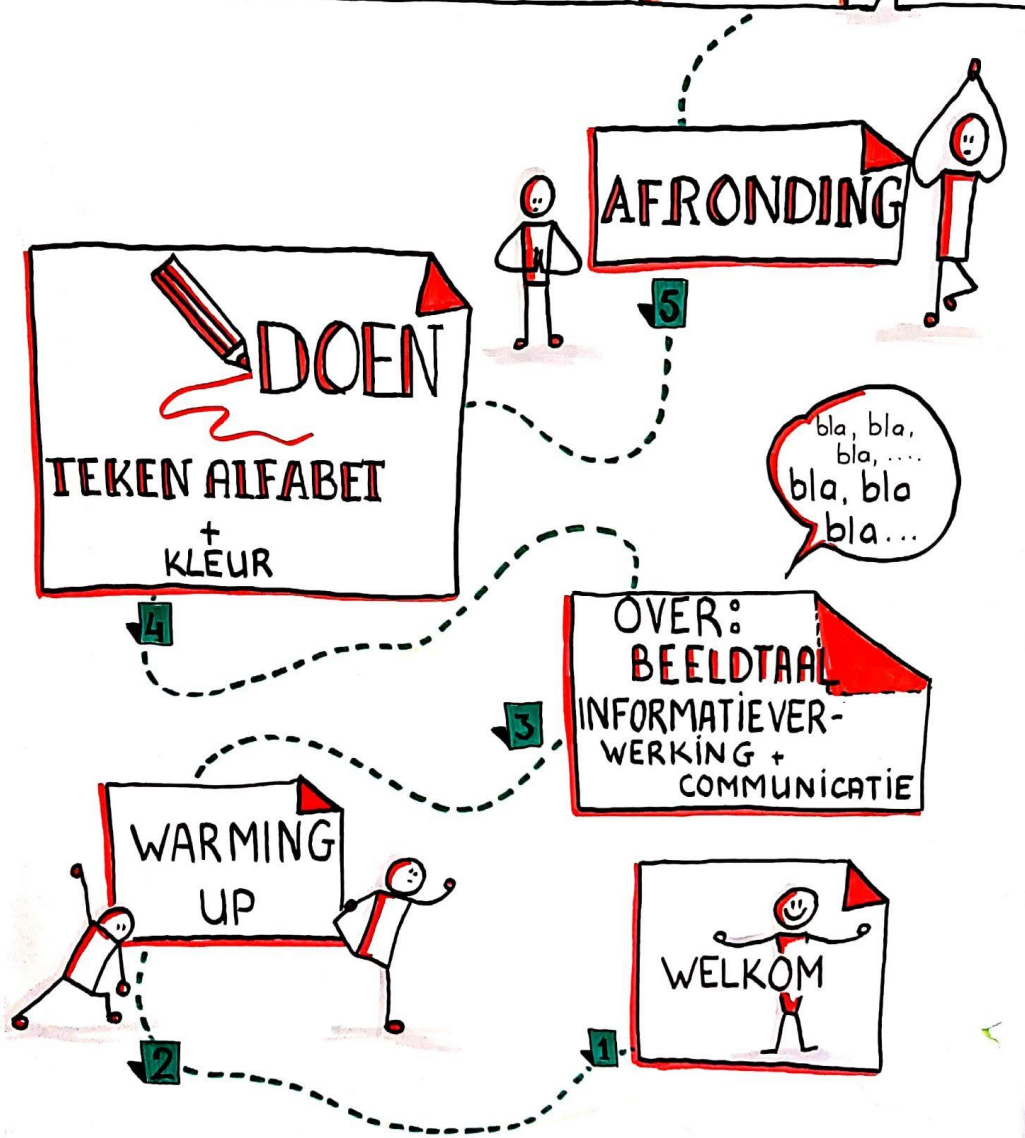 AFRONDING
5
DOEN
TEKEN ALFABET
+
KLEUR
4
bla, bla,
bla, ....
bla, bla
bla...
OVER:
BEELDTAAL
INFORMATIEVER-
WERKING +
COMMUNICATIE
3
WARMING
UP
2
WELKOM
1